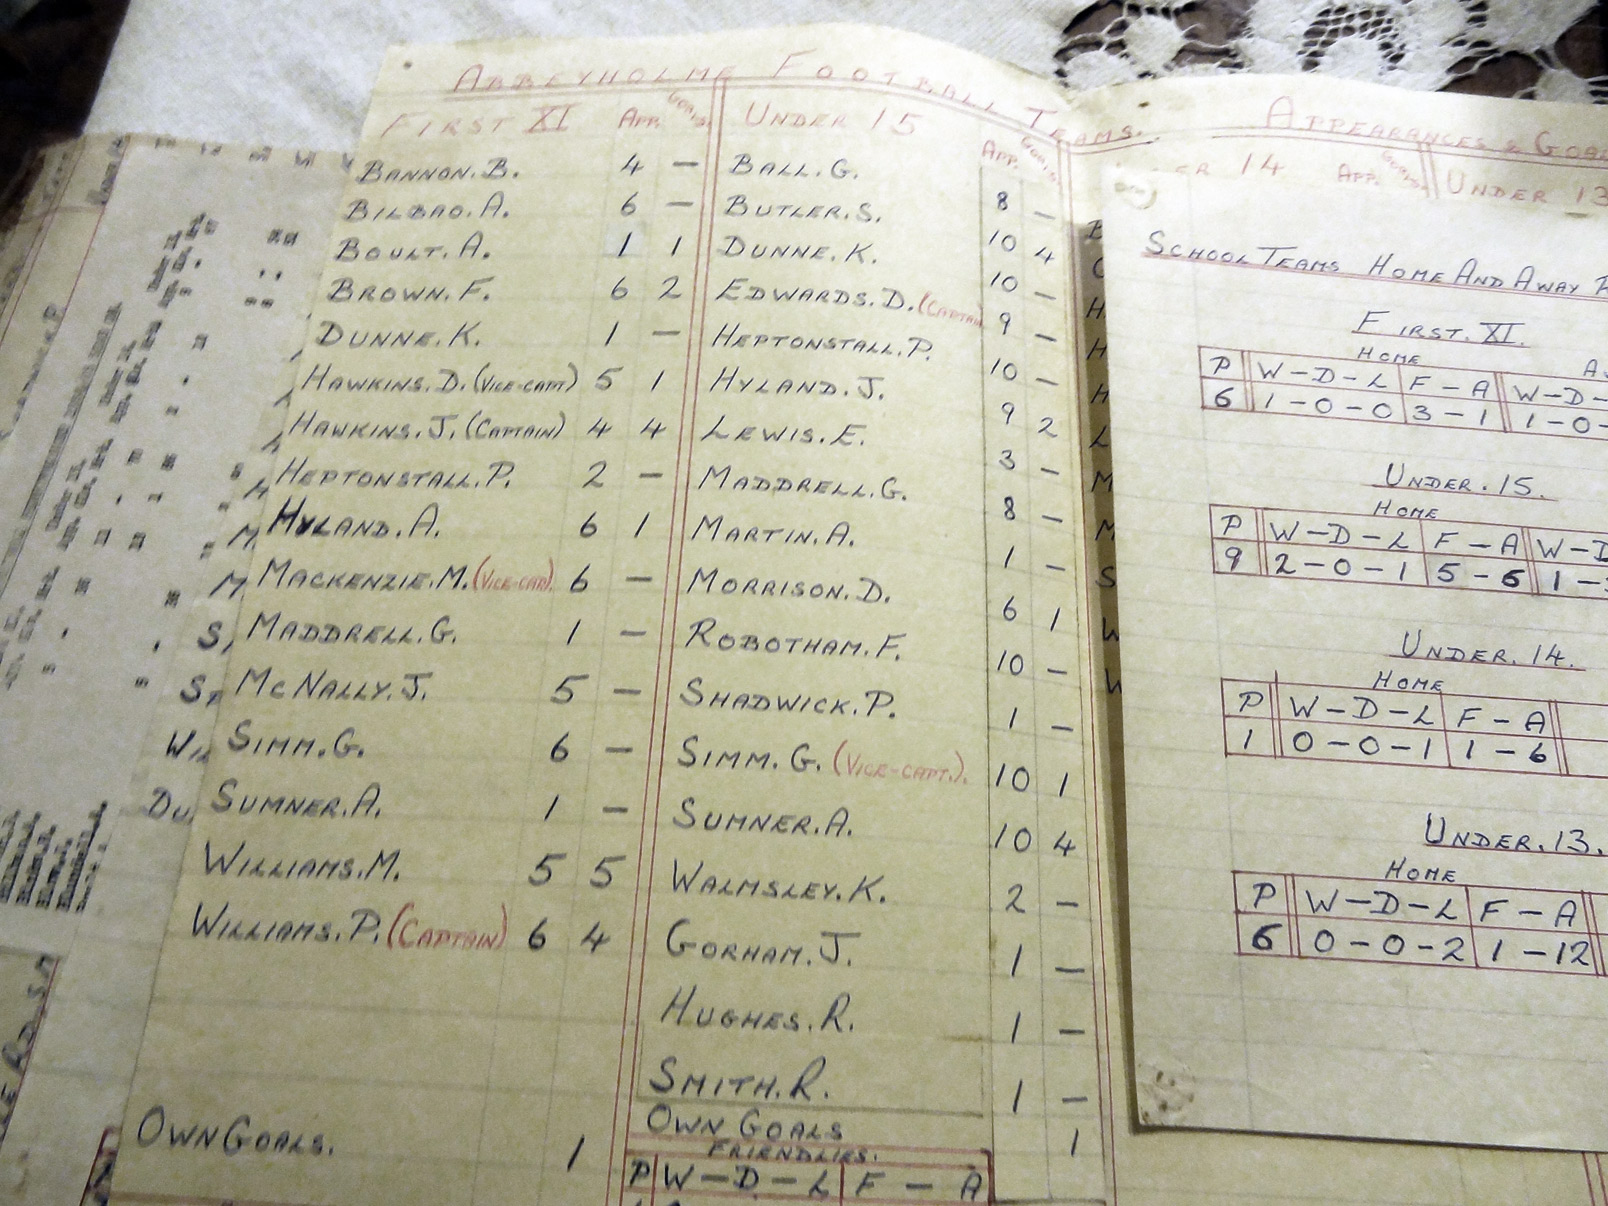 ABBEYHOLME FOOTBALL TEAMS.
FIRST XI APP. GOALS.
BANNON. B. 4 —
BILBAO. A. 6 —
BOULT. A. 1 1
BROWN. F. 6 2
DUNNE. K. 1 —
HAWKINS. D. (VICE-CAPT) 5 1
HAWKINS. J. (CAPTAIN) 4 4
HEPTONSTALL. P. 2 —
HYLAND. A. 6 1
MACKENZIE. M. (VICE-CAP). 6 —
MADDRELL. G. 1 —
MCNALLY. J. 5 —
SIMM. G. 6 —
SUMNER. A. 1 —
WILLIAMS. M. 5 5
WILLIAMS. P. (CAPTAIN) 6 4
OWN GOALS. 1
UNDER 15 APP. GOALS.
BALL. G. 8 —
BUTLER. S. 10 4
DUNNE. K. 10 —
EDWARDS. D. (CAPTAIN 9 —
HEPTONSTALL. P. 10 —
HYLAND. J. 9 2
LEWIS. E. 3 —
MADDRELL. G. 8 —
MARTIN. A. 1 —
MORRISON. D. 6 1
ROBOTHAM. F. 10 —
SHADWICK. P. 1 —
SIMM. G. (VICE-CAPT.). 10 1
SUMNER. A. 10 4
WALMSLEY. K. 2 —
GORHAM. J. 1 —
HUGHES. R. 1 —
SMITH. R. 1 —
OWN GOALS 1
FRIENDLIES.
P W — D — L F — A
APPEARANCES & GOAL
ER 14 APP. GOALS. UNDER 13
SCHOOL TEAMS HOME AND AWAY R
FIRST. XI.
HOME
P W — D — L F — A W — D —
6 1 — 0 — 0 3 — 1 1 — 0 —
UNDER. 15.
HOME
P W — D — L F — A W — D
9 2 — 0 — 1 5 — 6 1 —
UNDER. 14.
HOME
P W — D — L F — A
1 0 — 0 — 1 1 — 6
UNDER. 13.
HOME
P W — D — L F — A
6 0 — 0 — 2 1 — 12